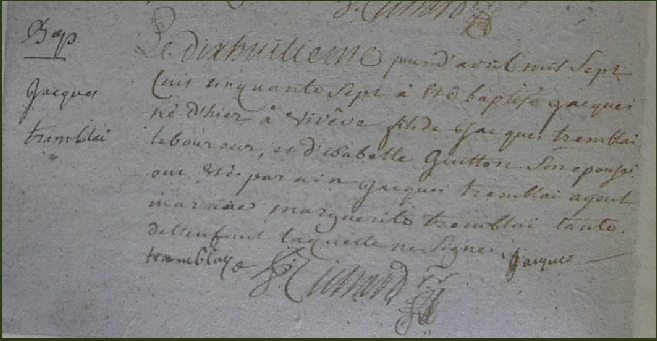 Bap
Jacques
tramblai
Le dixhuitieme jour d'avril mil sept
cens cinquante sept à été baptisé jacques
né d'hier à vivêve fils de jacques tremblai
laboureur, et d'isabelle Guitton son epouse
ont été parain jacques tremblai ayeul
maraine marguerite tremblai tante
de l'enfant laquelle ne signe. Jacques
tramblaye